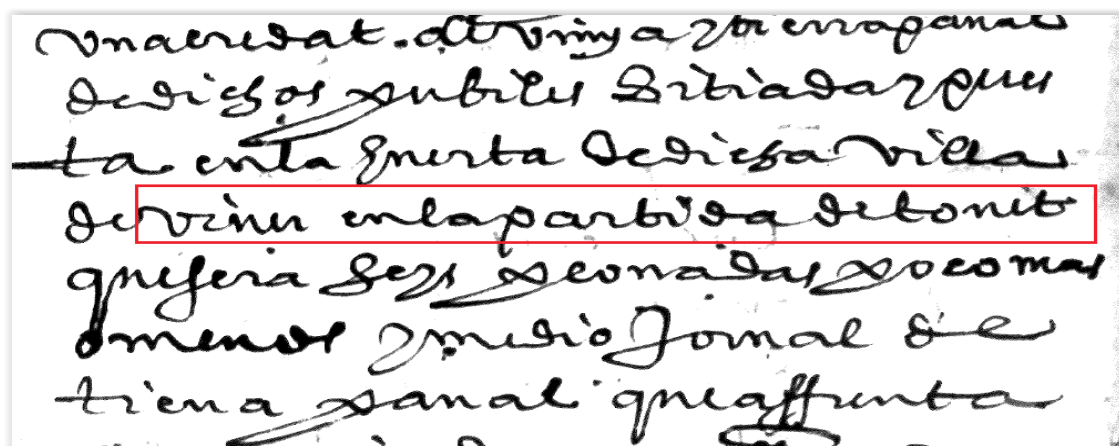 una eredat. de vinya y tierra panal
de dichos pubiles Sitiada y pues
ta en la guerta de dicha villa
de viner en la partida de tonet
que sera seys peonadas poco mas
o menos y medio Jornal de
tierra panal que affrunta